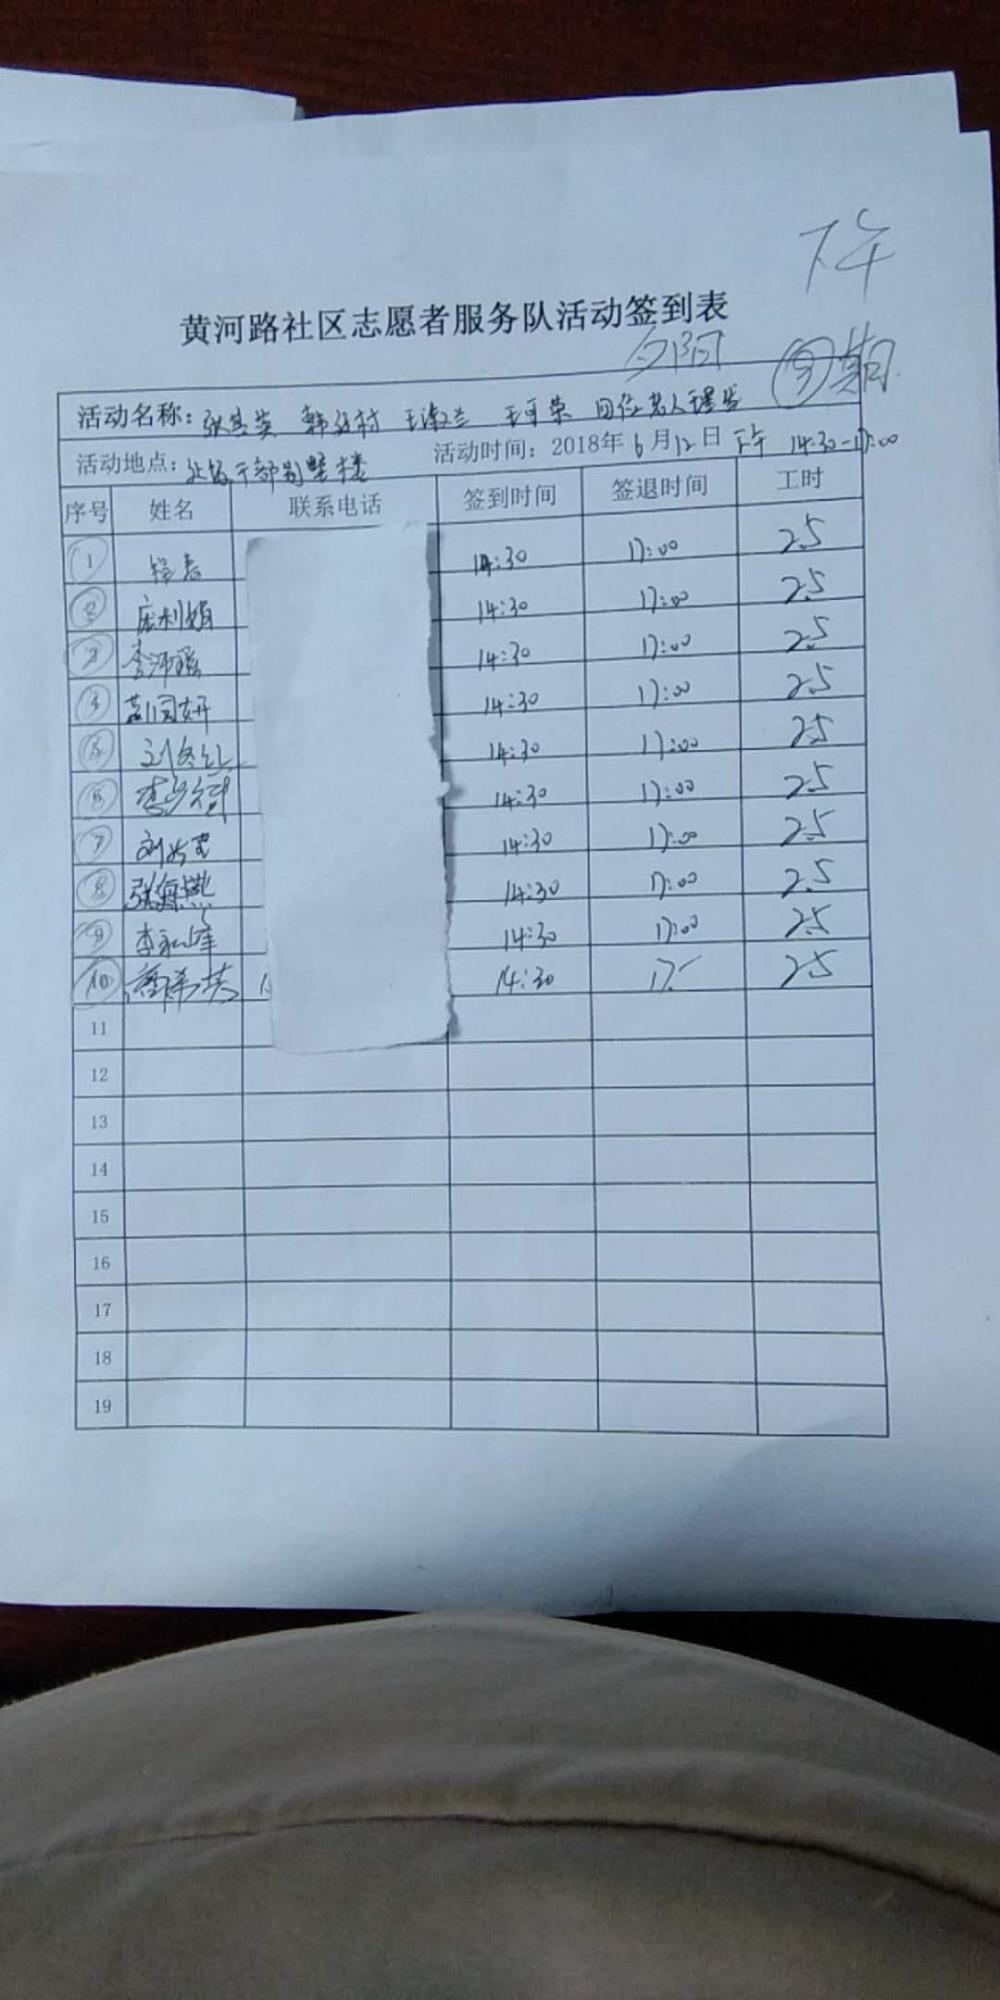 下午
黄河路社区志愿者服务队活动签到表
夕阳 ⑨期
活动名称: 张 王淑兰 王可荣 四位老人理发
活动地点: 干部别墅楼 活动时间: 2018年6月12日 下午 14:30-17:00
序号 姓名 联系电话 签到时间 签退时间 工时
1 14:30 17:00 2.5
2 庞利娟 14:30 17:00 2.5
3 李沛瑶 14:30 17:00 2.5
4 14:30 17:00 2.5
5 刘冬红 14:30 17:00 2.5
6 李 14:30 17:00 2.5
7 刘 14:30 17:00 2.5
8 张海燕 14:30 17:00 2.5
9 李永峰 14:30 17:00 2.5
10 14:30 17:- 2.5
11
12
13
14
15
16
17
18
19